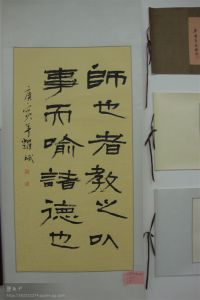 師也者教之以
事而喻諸德也
庚寅年